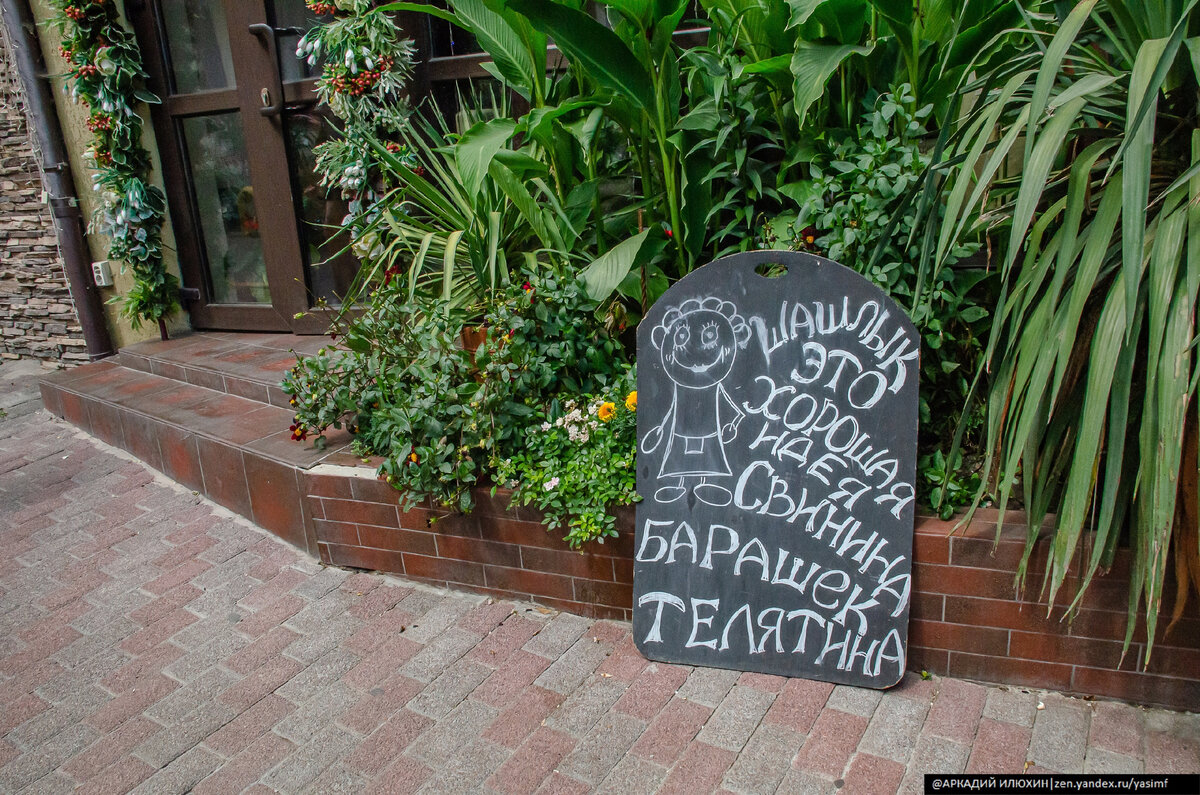 ШАШЛЫК
ЭТО
ХОРОШАЯ
ИДЕЯ
СВИНИНА
БАРАШЕК
ТЕЛЯТИНА
@АРКАДИЙ ИЛЮХИН|zen.yandex.ru/yasimf